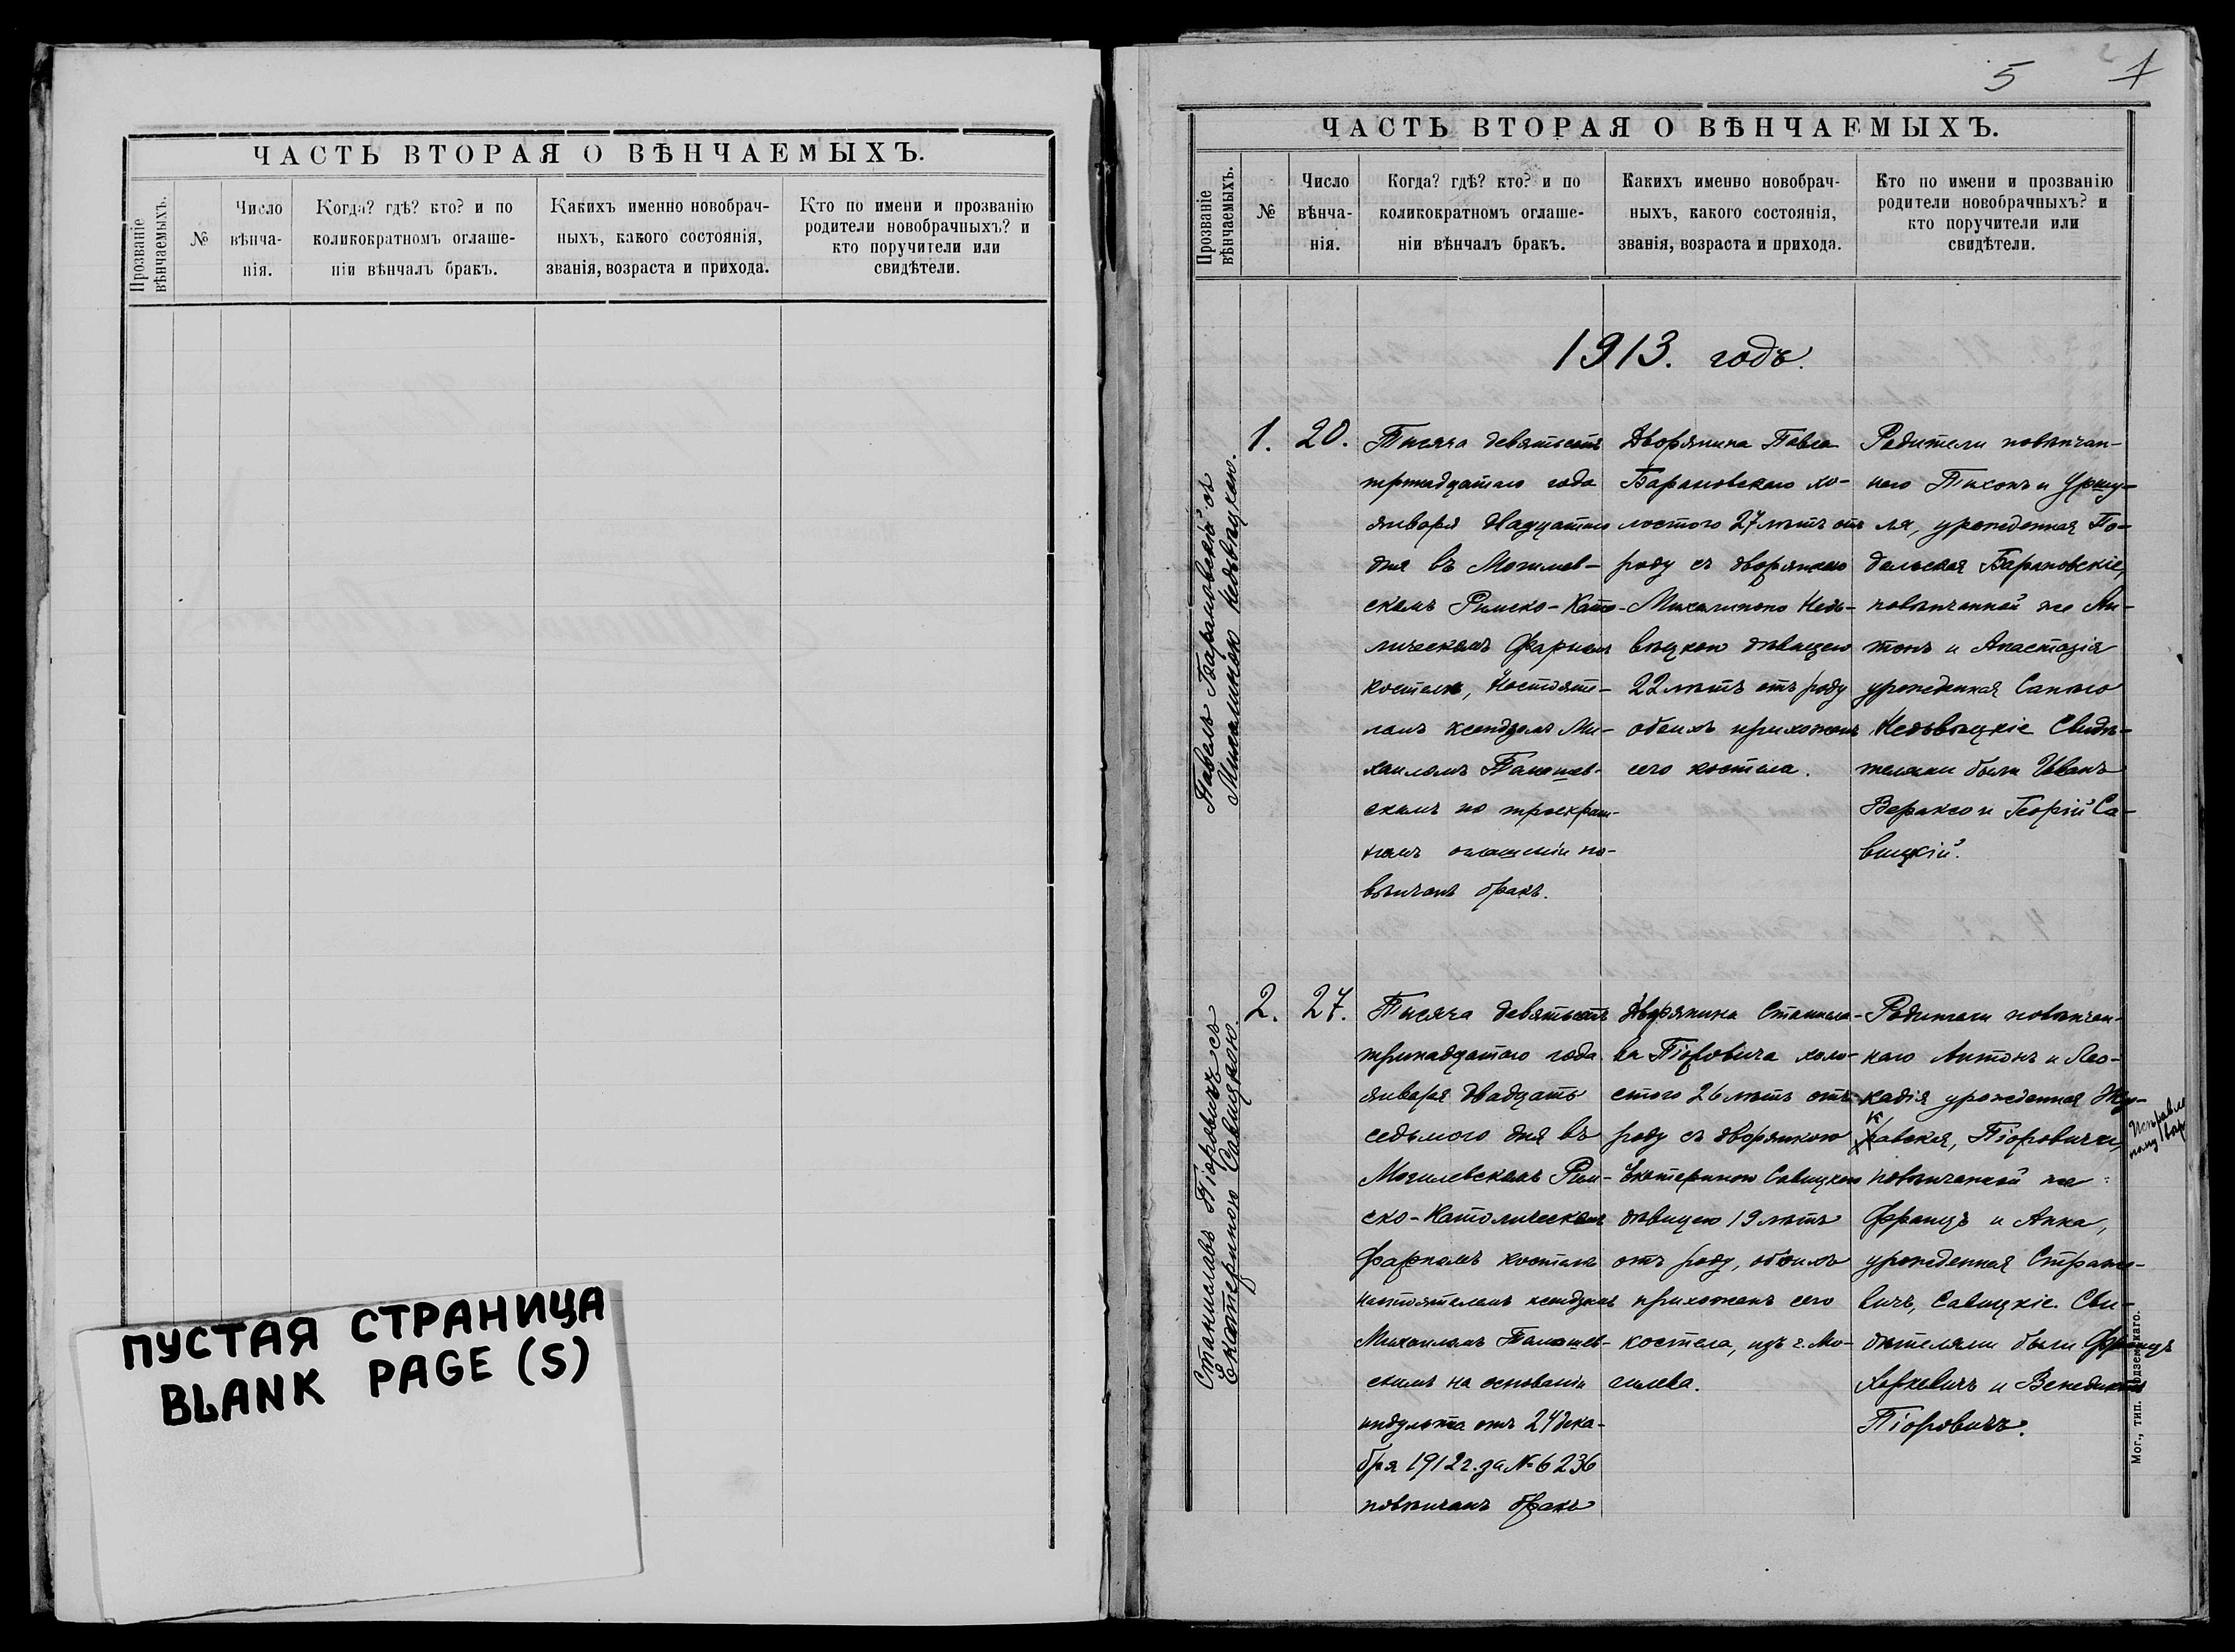 ЧАСТЬ ВТОРАЯ О ВѢНЧАЕМЫХЪ.
Прозваніе
вѣнчаемыхъ.
№
Число
вѣнча-
нія.
Когда? гдѣ? кто? и по
коликократномъ оглаше-
ніи вѣнчалъ бракъ.
Какихъ именно новобрач-
ныхъ, какого состоянія,
званія, возраста и прихода.
Кто по имени и прозванію
родители новобрачныхъ? и
кто поручители или
свидѣтели.
ПУСТАЯ СТРАНИЦА
BLANK PAGE (S)
5 1
ЧАСТЬ ВТОРАЯ О ВѢНЧАЕМЫХЪ.
Прозваніе
вѣнчаемыхъ.
№
Число
вѣнча-
нія.
Когда? гдѣ? кто? и по
коликократномъ оглаше-
ніи вѣнчалъ бракъ.
Какихъ именно новобрач-
ныхъ, какого состоянія,
званія, возраста и прихода.
Кто по имени и прозванію
родители новобрачныхъ? и
кто поручители или
свидѣтели.
1913. годъ.
Павелъ Барановскій съ
Михалиною Недзвѣцкою.
1.
20.
Тысяча девятьсотъ
тринадцатаго года
января двадцатаго
дня въ Могилев-
скомъ Римско-Като-
лическомъ Фарномъ
костелѣ, Настояте-
лемъ ксендзомъ Ми-
хаиломъ
скимъ по троекрат-
номъ оглашеніи по-
вѣнчанъ бракъ.
Дворянина Павла
Барановскаго хо-
лостого 27 лѣтъ отъ
роду съ дворянкою
Михалиною Недз-
вѣцкою дѣвицею
22 лѣтъ отъ роду
обоихъ прихожанъ
сего костела.
Родители повѣнчан-
наго Тихонъ и Уршу-
ля, урожденная По-
дольская Барановскіе,
повѣнчанной же Ан-
тонъ и Анастазія
урожденная Сапего
Недзвѣцкіе Свидѣ-
телями были Иванъ
Вераксо и Георгій Са-
вицкій.
Станиславъ Піоровичъ съ
Екатериною Савицкою.
2.
27.
Тысяча девятьсотъ
тринадцатаго года
января двадцать
седьмого дня въ
Могилевскомъ Рим-
ско-Католическомъ
Фарномъ костелѣ
настоятелемъ ксендзомъ
Михаиломъ
скимъ на основаніи
индульта отъ 24 дека-
бря 1912 г. за № 6236
повѣнчанъ бракъ
Дворянина Станисла-
ва Піоровича холо-
стого 26 лѣтъ отъ
роду съ дворянкою
Екатериною Савицкою
дѣвицею 19 лѣтъ
отъ роду, обоихъ
прихожанъ сего
костела, изъ г. Мо-
гилева.
Родители повѣнчан-
наго Антонъ и Лео-
кадія урожденная Жу-
ковская, Піоровичи,
повѣнчанной же
Францъ и Анна,
урожденная
вичъ, Савицкіе. Сви-
дѣтелями были Францъ
Харкевичъ и Венедиктъ
Піоровичъ.
Мог., тип. Подземскаго.